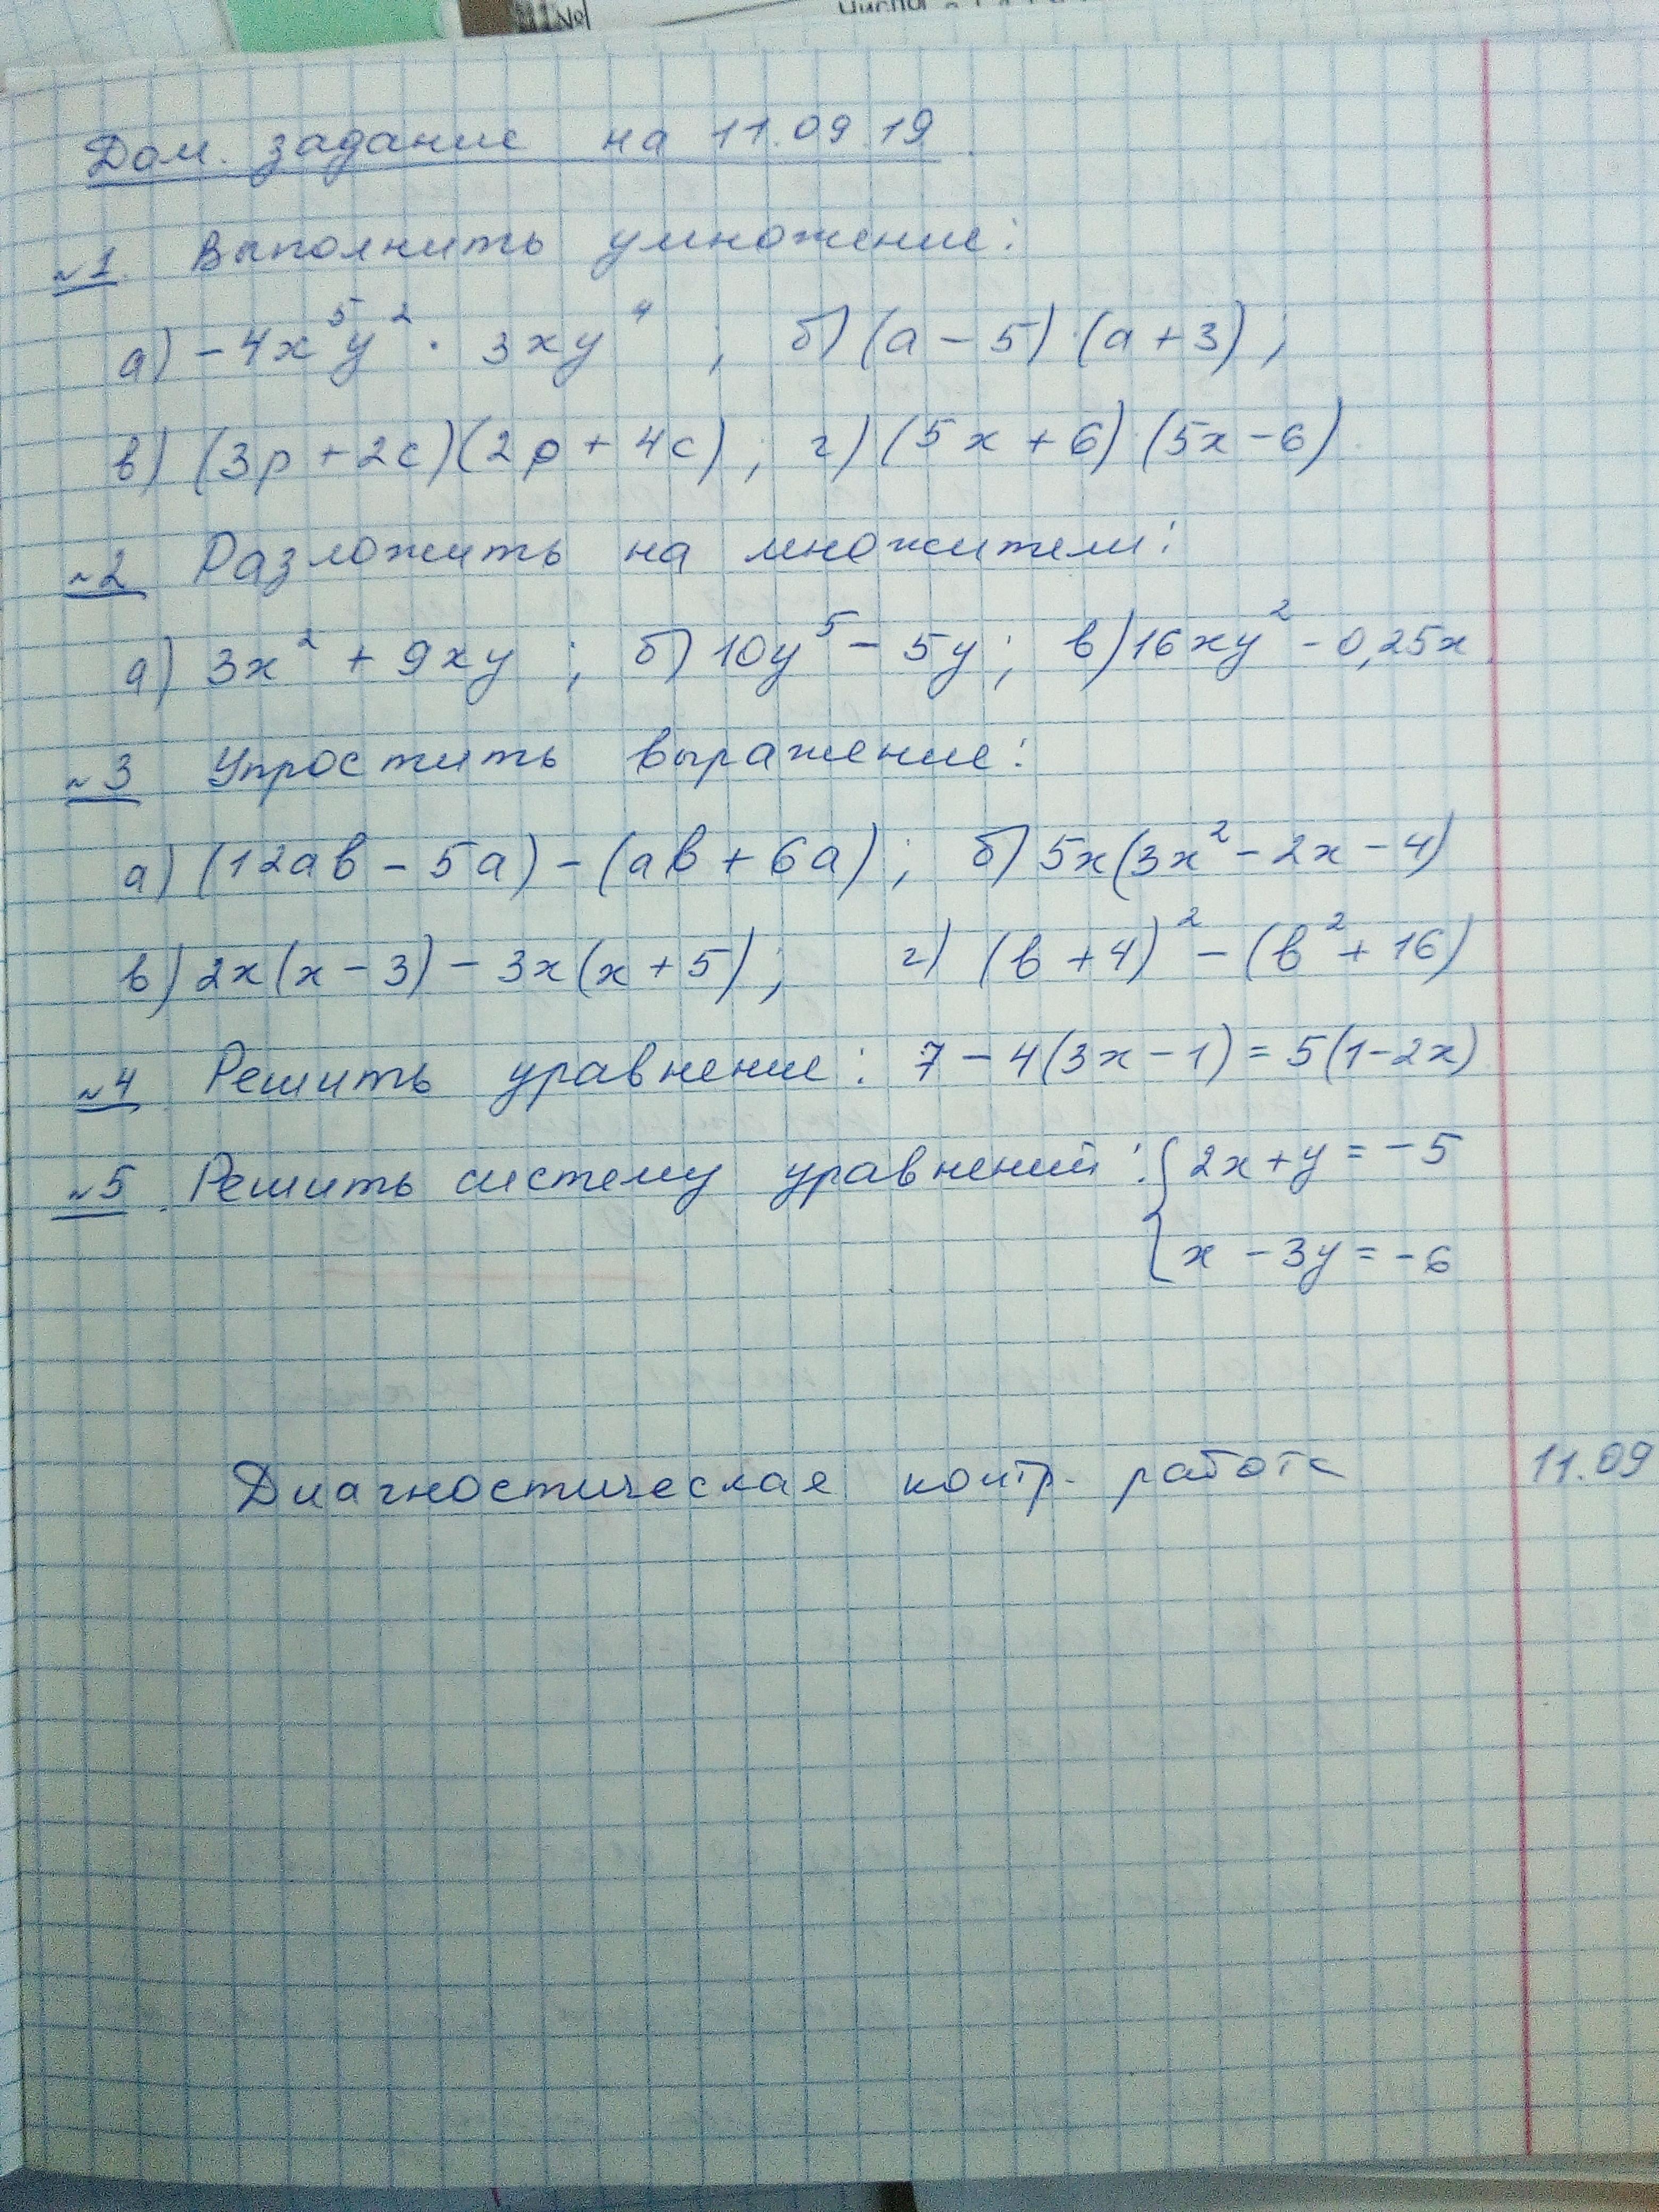 Дом. задание на 11.09.19.
№1. Выполнить умножение:
а) -4x⁵y² · 3xy⁴ ; б) (a - 5)·(a + 3);
в) (3p + 2c)(2p + 4c); г) (5x + 6)·(5x - 6).
№2 Разложить на множители:
а) 3x² + 9xy ; б) 10y⁵ - 5y; в) 16xy² - 0,25x.
№3 Упростить выражение:
а) (12ab - 5a) - (ab + 6a); б) 5x(3x² - 2x - 4)
в) 2x(x - 3) - 3x(x + 5); г) (b + 4)² - (b² + 16)
№4 Решить уравнение: 7 - 4(3x - 1) = 5(1 - 2x).
№5. Решить систему уравнений: { 2x + y = -5
x - 3y = -6
Диагностическая контр. работа 11.09